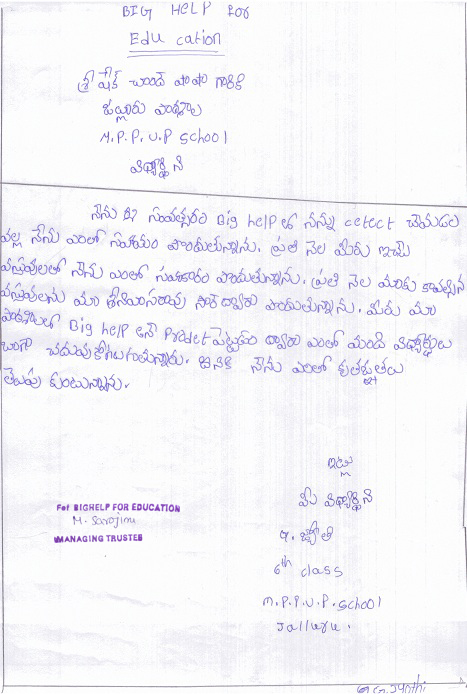 BIG HELP FOR
Edu cation
శ్రీ షేక్ చాందె పాషా గారికి
జల్లూరు పాఠశాల
M.P.P.U.P School
విద్యార్థిని
నేను ఈ సంవత్సరం Big help లో నన్ను celect చేయడం
వల్ల నేను ఎంతో సహాయం పొందుతున్నాను. ప్రతి నెల మీరు ఇచ్చే
వస్తువులతో నేను ఎంతో సహకారం పొందుతున్నాను. ప్రతి నెల మాకు కావల్సిన
వస్తువులను మా శ్రీనివాసరావు సార్ ద్వారా పొందుతున్నాను. మీరు మా
పాఠశాలలో Big help అనే పెట్టడం ద్వారా ఎంతో మంది విద్యార్థులు
చాగా చదువుకోగలుగుతున్నారు. ఇందుకి నేను ఎంతో కృతజ్ఞతలు
తెలుపు కుంటున్నాను.
ఇట్లు
మీ విద్యార్థిని
జ్యోతి
6th class
M.P.P.U.P. School
Jalluru.
For BIGHELP FOR EDUCATION
M. Sarojini
MANAGING TRUSTEE
G. Jyothi